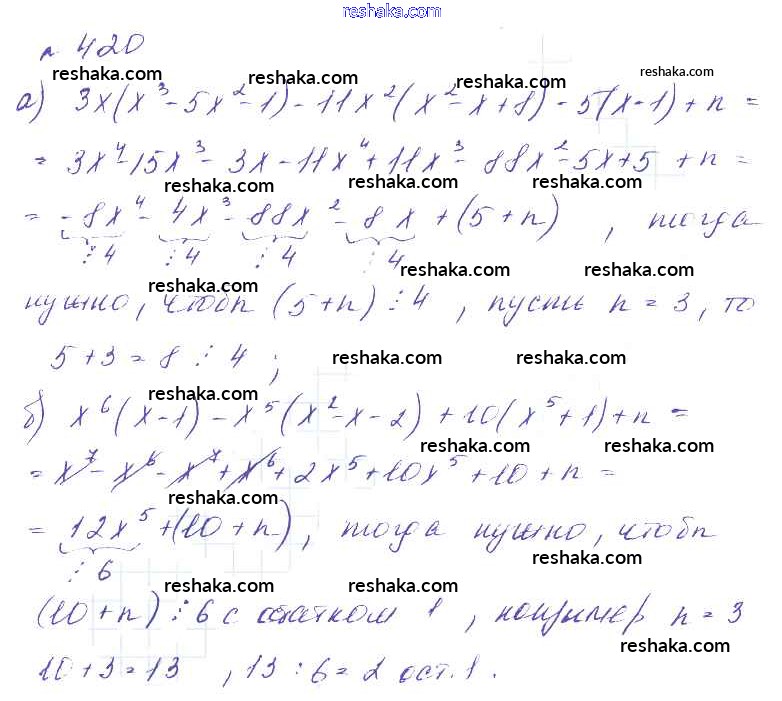 reshaka.com
№ 420
reshaka.com reshaka.com reshaka.com reshaka.com
а) 3x(x³-5x²-1)-11x²(x²-x+8)-5(x-1)+n=
= 3x⁴-15x³-3x-11x⁴+11x³-88x²-5x+5+n=
reshaka.com reshaka.com reshaka.com
= -8x⁴-4x³-88x²-8x+(5+n), тогда
⋮4 ⋮4 ⋮4 ⋮4
reshaka.com reshaka.com reshaka.com
нужно, чтобы (5+n)⋮4, пусть n=3, то
5+3=8⋮4; reshaka.com reshaka.com
reshaka.com
б) x⁶(x-1)-x⁵(x²-x-2)+10(x⁵+1)+n=
reshaka.com reshaka.com
= x⁷-x⁶-x⁷+x⁶+2x⁵+10x⁵+10+n=
reshaka.com
= 12x⁵+(10+n), тогда нужно, чтобы
⋮6 reshaka.com
reshaka.com reshaka.com
(10+n)⋮6 с остатком 1, например n=3
reshaka.com
10+3=13, 13:6=2 ост.1.